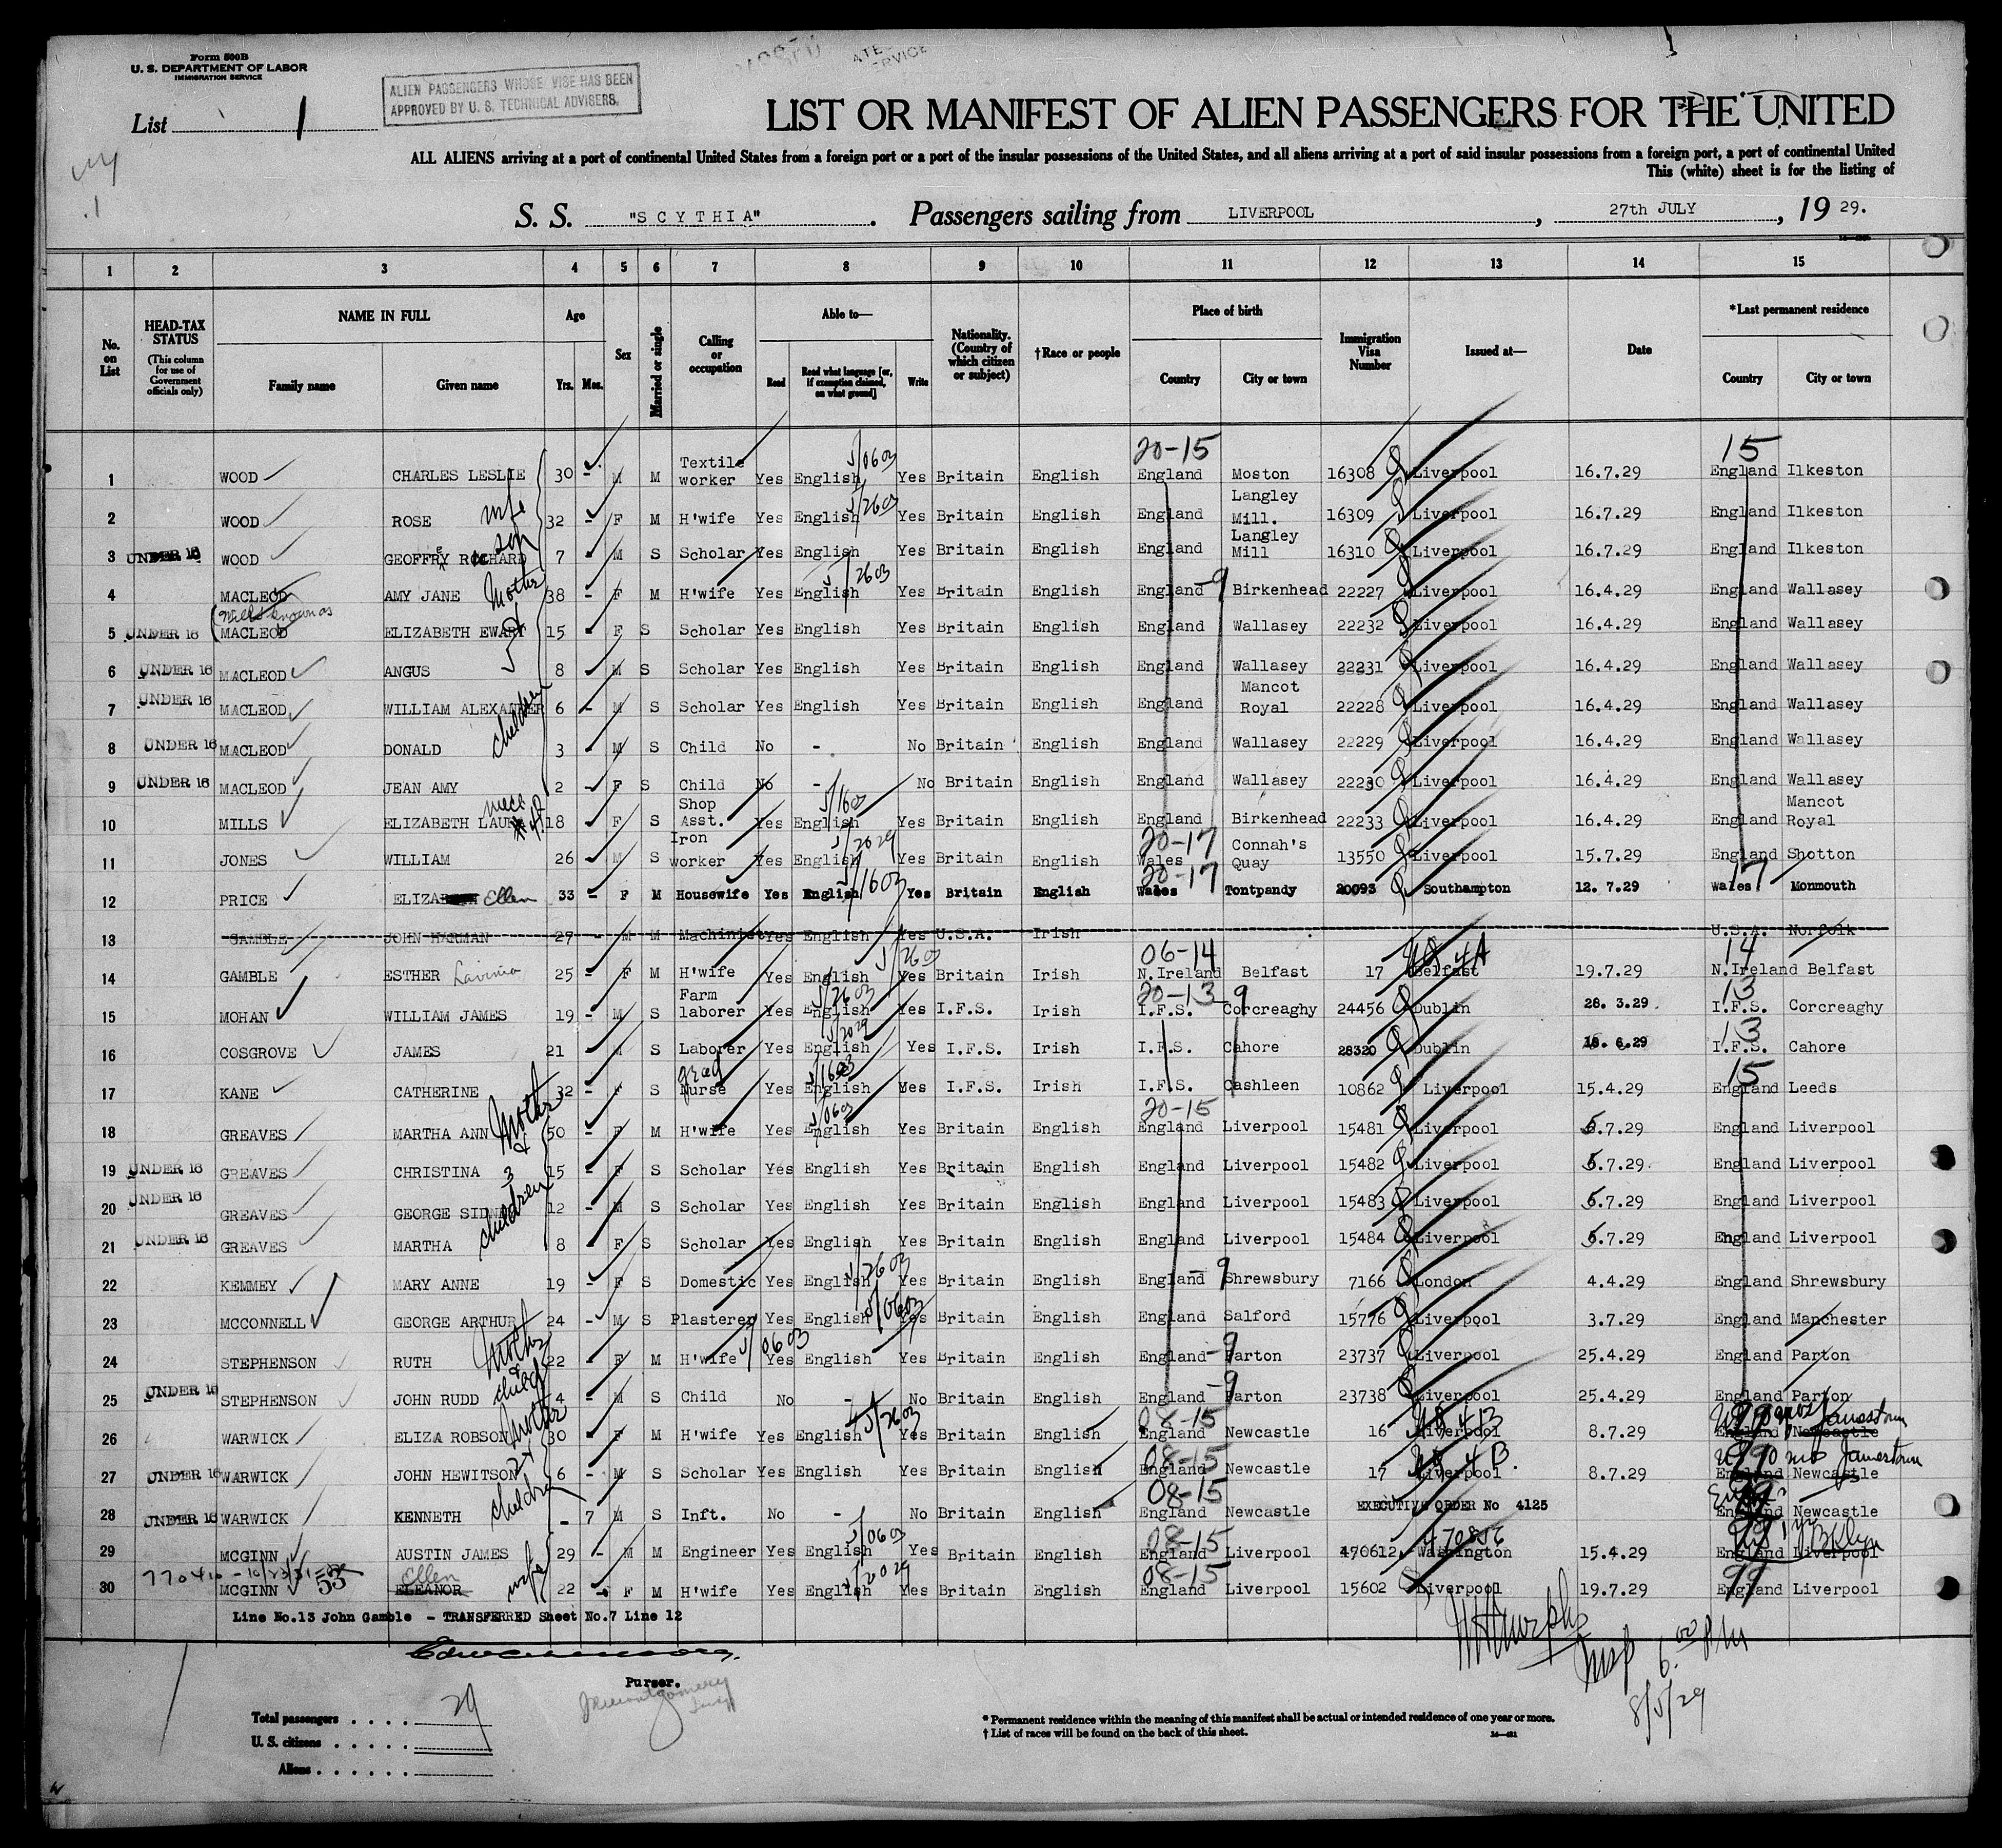 Form 500B
U. S. DEPARTMENT OF LABOR
IMMIGRATION SERVICE
ALIEN PASSENGERS WHOSE VISE HAS BEEN
APPROVED BY U. S. TECHNICAL ADVISERS.
List 1
LIST OR MANIFEST OF ALIEN PASSENGERS FOR THE UNITED
ALL ALIENS arriving at a port of continental United States from a foreign port or a port of the insular possessions of the United States, and all aliens arriving at a port of said insular possessions from a foreign port, a port of continental United
This (white) sheet is for the listing of
S. S. "SCYTHIA". Passengers sailing from LIVERPOOL, 27th JULY, 19 29.
1 2 3 4 5 6 7 8 9 10 11 12 13 14 15
No. on List
HEAD-TAX STATUS (This column for use of Government officials only)
NAME IN FULL Family name Given name
Age Yrs. Mos.
Sex
Married or single
Calling or occupation
Able to— Read Read what language [or, if exemption claimed, on what ground] Write
Nationality. (Country of which citizen or subject)
†Race or people
Place of birth Country City or town
Immigration Visa Number
Issued at—
Date
*Last permanent residence Country City or town
20-15 15
1 WOOD CHARLES LESLIE 30 - M M Textile worker Yes English Yes Britain English England Moston 16308 Liverpool 16.7.29 England Ilkeston
2 WOOD ROSE wife 32 - F M H'wife Yes English Yes Britain English England Langley Mill. 16309 Liverpool 16.7.29 England Ilkeston
3 UNDER 16 WOOD GEOFFREY RICHARD son 7 - M S Scholar Yes English Yes Britain English England Langley Mill 16310 Liverpool 16.7.29 England Ilkeston
4 MACLEOD AMY JANE Mother 38 - F M H'wife Yes English Yes Britain English England -9 Birkenhead 22227 Liverpool 16.4.29 England Wallasey
5 UNDER 16 MACLEOD ELIZABETH EWART 15 - F S Scholar Yes English Yes Britain English England Wallasey 22232 Liverpool 16.4.29 England Wallasey
6 UNDER 16 MACLEOD ANGUS 5 8 - M S Scholar Yes English Yes Britain English England Wallasey 22231 Liverpool 16.4.29 England Wallasey
7 UNDER 16 MACLEOD WILLIAM ALEXANDER children 6 - M S Scholar Yes English Yes Britain English England Mancot Royal 22228 Liverpool 16.4.29 England Wallasey
8 UNDER 16 MACLEOD DONALD 3 M S Child No - No Britain English England Wallasey 22229 Liverpool 16.4.29 England Wallasey
9 UNDER 16 MACLEOD JEAN AMY 2 - F S Child No - No Britain English England Wallasey 22230 Liverpool 16.4.29 England Wallasey
10 MILLS ELIZABETH LAURA niece 18 F S Shop Asst. Yes English Yes Britain English England Birkenhead 22233 Liverpool 16.4.29 England Mancot Royal
11 JONES WILLIAM 26 M S Iron worker Yes English Yes Britain English 20-17 Wales Connah's Quay 13550 Liverpool 15.7.29 England Shotton
12 PRICE ELIZA Ellen 33 - F M Housewife Yes English Yes Britain English 20-17 Wales Tontpandy 20093 Southampton 12.7.29 17 Wales Monmouth
13 GAMBLE JOHN HARMAN 27 - M M Machinist Yes English Yes U.S.A. Irish U.S.A. Norfolk
14 GAMBLE ESTHER Lavinia 25 - F M H'wife Yes English Yes Britain Irish 06-14 N.Ireland Belfast 17 Belfast 19.7.29 14 N.Ireland Belfast
15 MOHAN WILLIAM JAMES 19 - M S Farm laborer Yes English Yes I.F.S. Irish 20-13-9 I.F.S. Corcreaghy 24456 Dublin 28.3.29. 13 I.F.S. Corcreaghy
16 COSGROVE JAMES 21 M S Laborer Yes English Yes I.F.S. Irish I.F.S. Cahore 28320 Dublin 18.6.29 13 I.F.S. Cahore
17 KANE CATHERINE 32 - F S grad Nurse Yes English Yes I.F.S. Irish I.F.S. Cashleen 10862 Liverpool 15.4.29 15 England Leeds
18 GREAVES MARTHA ANN Mother 50 - F M H'wife Yes English Yes Britain English 20-15 England Liverpool 15481 Liverpool 5.7.29 England Liverpool
19 UNDER 16 GREAVES CHRISTINA 3 15 - F S Scholar Yes English Yes Britain English England Liverpool 15482 Liverpool 5.7.29 England Liverpool
20 UNDER 16 GREAVES GEORGE SIDNEY children 12 - M S Scholar Yes English Yes Britain English England Liverpool 15483 Liverpool 5.7.29 England Liverpool
21 UNDER 16 GREAVES MARTHA 8 - F S Scholar Yes English Yes Britain English England Liverpool 15484 Liverpool 5.7.29 England Liverpool
22 KEMMEY MARY ANNE 19 - F S Domestic Yes English Yes Britain English England -9 Shrewsbury 7166 London 4.4.29 England Shrewsbury
23 MCCONNELL GEORGE ARTHUR 24 - M S Plasterer Yes English Yes Britain English England Salford 15776 Liverpool 3.7.29 England Manchester
24 STEPHENSON RUTH Mother 22 - F M H'wife Yes English Yes Britain English England -9 Parton 23737 Liverpool 25.4.29 England Parton
25 UNDER 16 STEPHENSON JOHN RUDD & child 4 - M S Child No - No Britain English England -9 Parton 23738 Liverpool 25.4.29 England Parton
26 WARWICK ELIZA ROBSON Mother 30 - F M H'wife Yes English Yes Britain English 08-15 England Newcastle 16 Liverpool 8.7.29 England Newcastle Jamestown
27 UNDER 16 WARWICK JOHN HEWITSON 6 - M S Scholar Yes English Yes Britain English 08-15 England Newcastle 17 Liverpool 8.7.29 England Newcastle Jamestown
28 UNDER 16 WARWICK KENNETH children - 7 M S Inft. No - No Britain English 08-15 England Newcastle EXECUTIVE ORDER No 4125 England Newcastle
29 MCGINN AUSTIN JAMES 29 - M M Engineer Yes English Yes Britain English 08-15 England Liverpool 470612 Washington 15.4.29 England Liverpool
30 MCGINN ELEANOR Ellen wife 22 - F M H'wife Yes English Yes Britain English 08-15 England Liverpool 15602 Liverpool 19.7.29 99 England Liverpool
Line No.13 John Gamble - TRANSFERRED Sheet No.7 Line 12
Purser.
Total passengers . . . . 29
U. S. citizens . . . . .
Aliens . . . . . .
* Permanent residence within the meaning of this manifest shall be actual or intended residence of one year or more.
† List of races will be found on the back of this sheet.
8/5/29